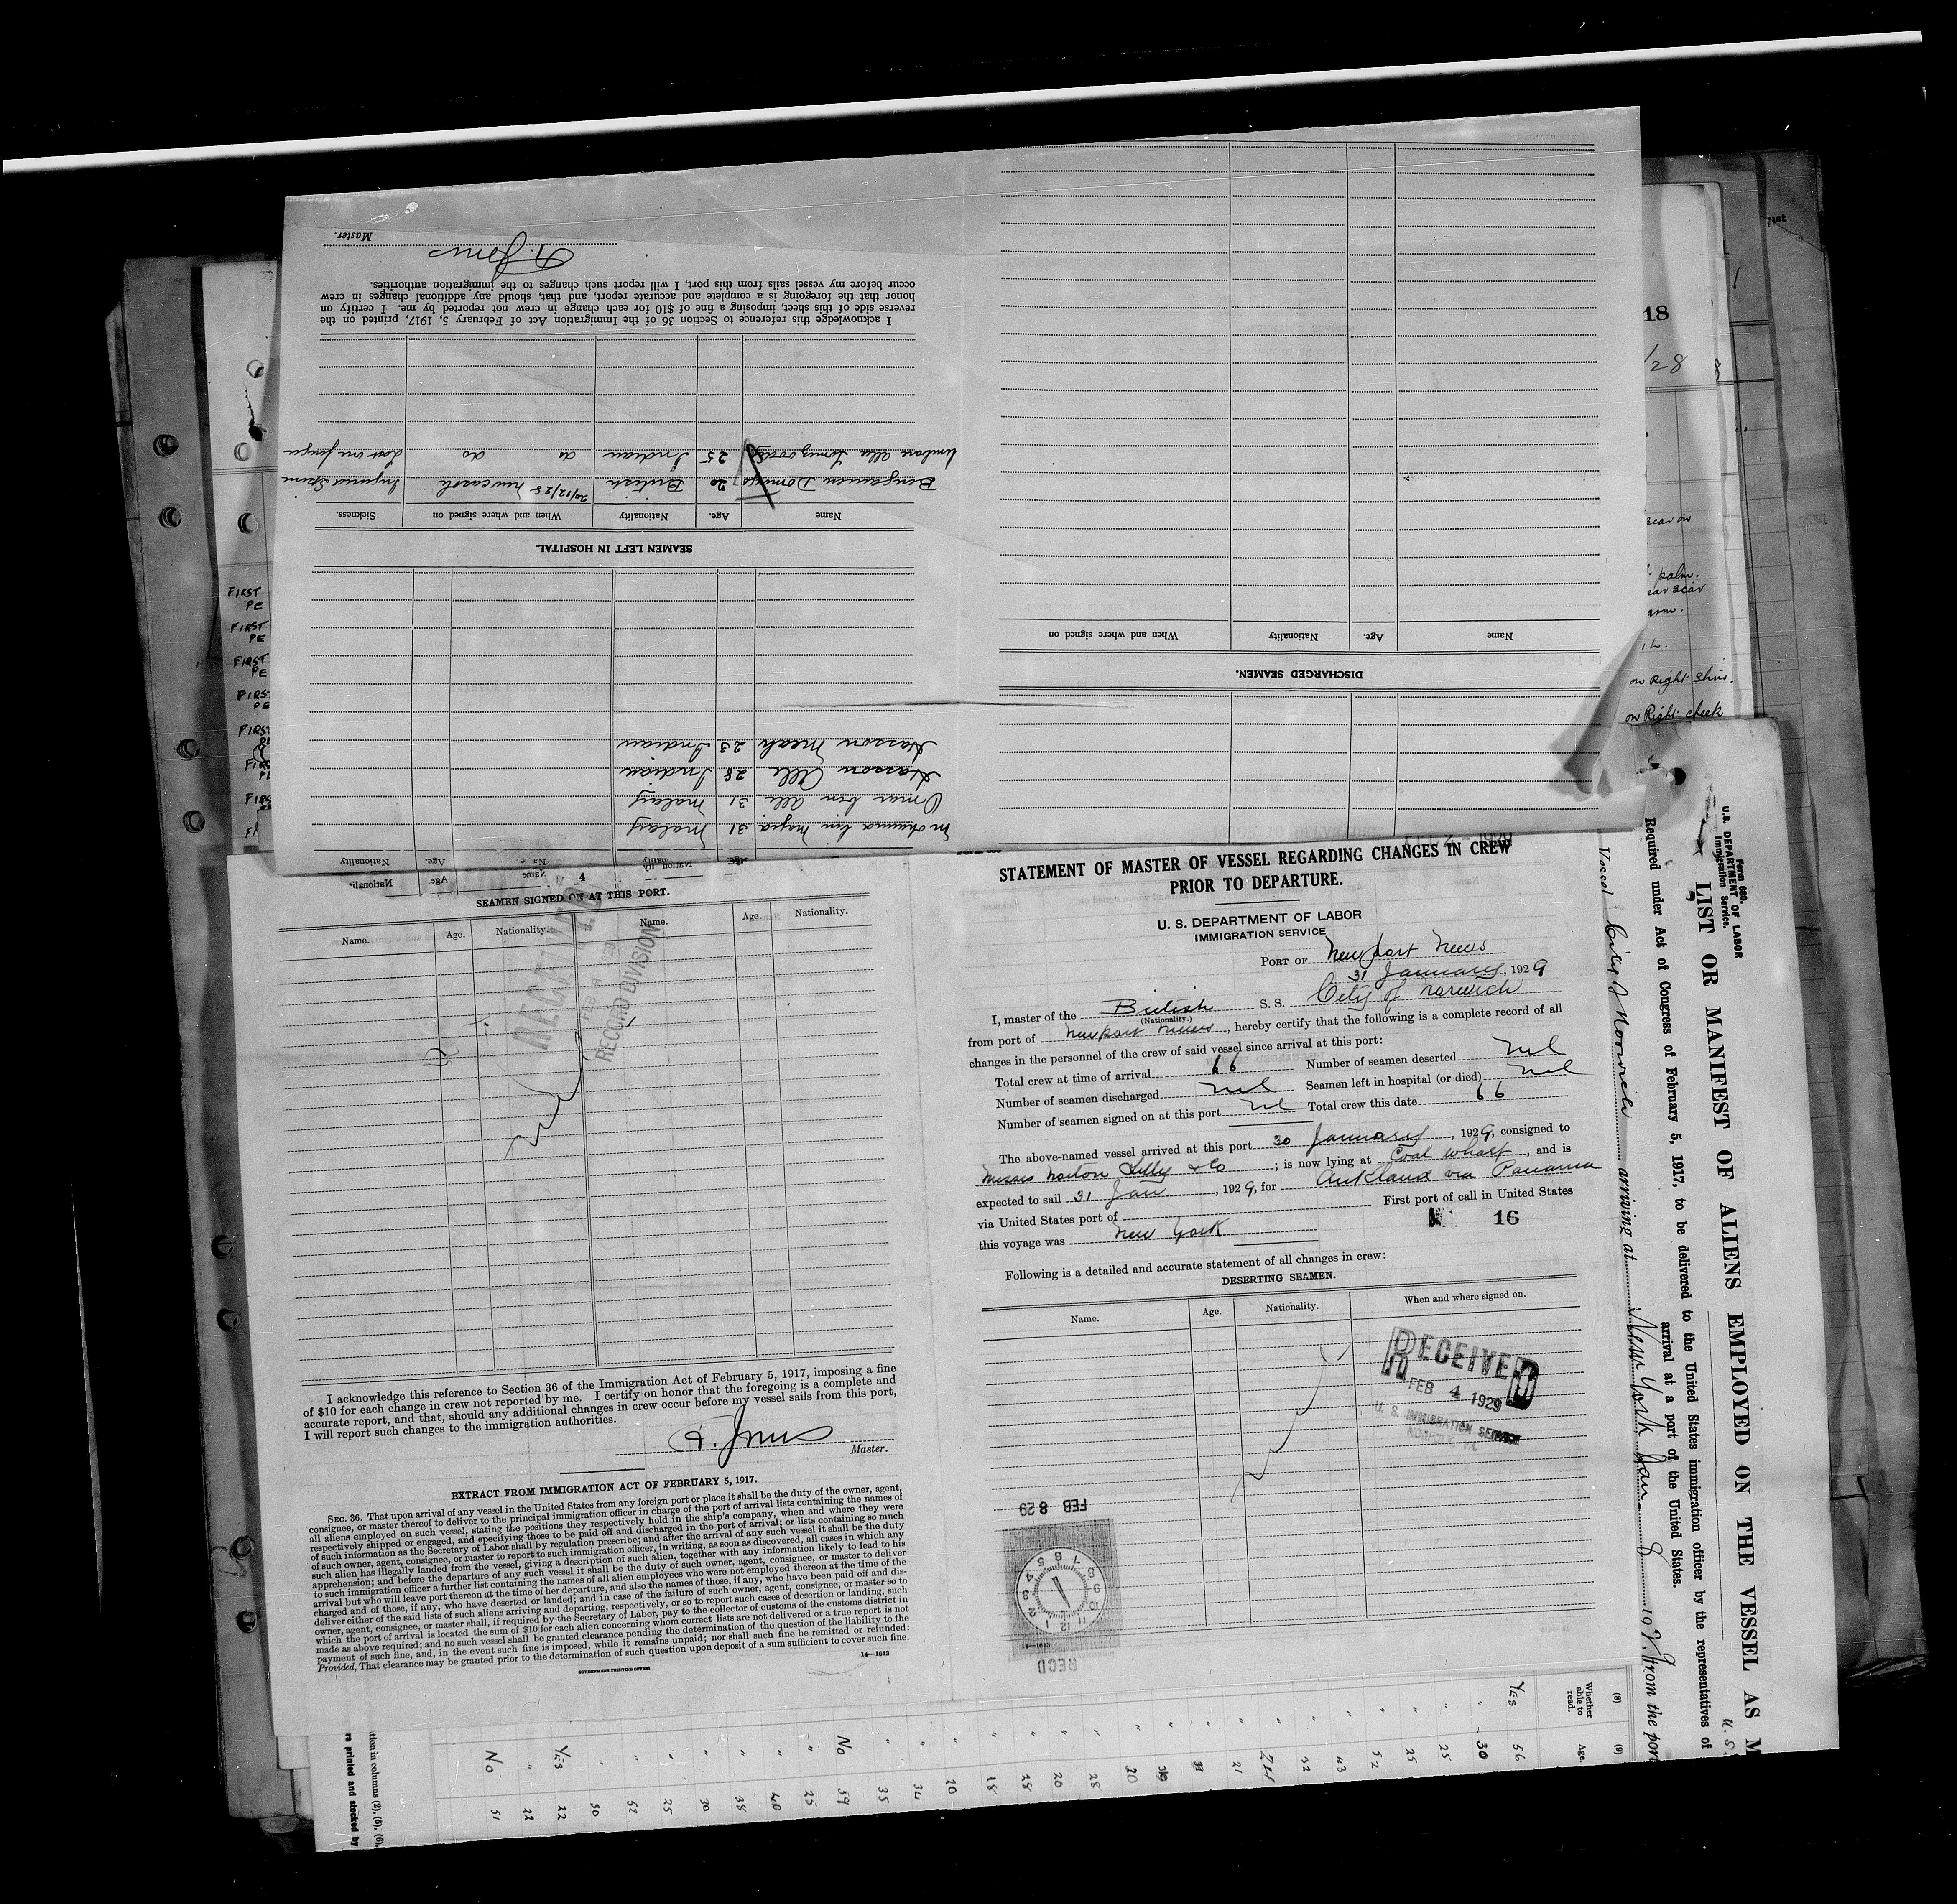 Master.
I acknowledge this reference to Section 36 of the Immigration Act of February 5, 1917, printed on the
reverse side of this sheet, imposing a fine of $10 for each change in crew not reported by me. I certify on
honor that the foregoing is a complete and accurate report, and that, should any additional changes in crew
occur before my vessel sails from this port, I will report such changes to the immigration authorities.
SEAMEN LEFT IN HOSPITAL.
Name Age. Nationality When and where signed on Sickness.
Benjamin Domingo 20 British 20/12/28 Newcastle Injured Spine
25 Indian do do Lost one finger
Name Age. Nationality
31 Malay
Omar bin Alli 31 Malay
Hasson Alli 28 Indian
Hasson Meah 23 Indian
DISCHARGED SEAMEN.
Name Age. Nationality When and where signed on
18
/28
scar on
palm.
ear scar
arm.
on Right Shin.
on Right cheek
FIRST
PE
FIRST
PE
FIRST
PE
FIRST
PE
FIRST
4
SEAMEN SIGNED ON AT THIS PORT.
Name. Age. Nationality. Name. Age. Nationality.
RECEIVED
FEB 8 1929
RECORD DIVISION
I acknowledge this reference to Section 36 of the Immigration Act of February 5, 1917, imposing a fine
of $10 for each change in crew not reported by me. I certify on honor that the foregoing is a complete and
accurate report, and that, should any additional changes in crew occur before my vessel sails from this port,
I will report such changes to the immigration authorities.
Master.
EXTRACT FROM IMMIGRATION ACT OF FEBRUARY 5, 1917.
SEC. 36. That upon arrival of any vessel in the United States from any foreign port or place it shall be the duty of the owner, agent,
consignee, or master thereof to deliver to the principal immigration officer in charge of the port of arrival lists containing the names of
all aliens employed on such vessel, stating the positions they respectively hold in the ship's company, when and where they were
respectively shipped or engaged, and specifying those to be paid off and discharged in the port of arrival; or lists containing so much
of such information as the Secretary of Labor shall by regulation prescribe; and after the arrival of any such vessel it shall be the duty
of such owner, agent, consignee, or master to report to such immigration officer, in writing, as soon as discovered, all cases in which any
such alien has illegally landed from the vessel, giving a description of such alien, together with any information likely to lead to his
apprehension; and before the departure of any such vessel it shall be the duty of such owner, agent, consignee, or master to deliver
to such immigration officer a further list containing the names of all alien employees who were not employed thereon at the time of the
arrival but who will leave port thereon at the time of her departure, and also the names of those, if any, who have been paid off and dis-
charged and of those, if any, who have deserted or landed; and in case of the failure of such owner, agent, consignee, or master so to
deliver either of the said lists of such aliens arriving and departing, respectively, or so to report such cases of desertion or landing, such
owner, agent, consignee, or master shall, if required by the Secretary of Labor, pay to the collector of customs of the customs district in
which the port of arrival is located the sum of $10 for each alien concerning whom correct lists are not delivered or a true report is not
made as above required; and no such vessel shall be granted clearance pending the determination of the question of the liability to the
payment of such fine, and, in the event such fine is imposed, while it remains unpaid; nor shall such fine be remitted or refunded:
Provided, That clearance may be granted prior to the determination of such question upon deposit of a sum sufficient to cover such fine.
14—1613
GOVERNMENT PRINTING OFFICE
STATEMENT OF MASTER OF VESSEL REGARDING CHANGES IN CREW
PRIOR TO DEPARTURE.
U. S. DEPARTMENT OF LABOR
IMMIGRATION SERVICE
PORT OF Newport News
31 January, 1929
I, master of the British S. S. City of Norwich
(Nationality.)
from port of Newport News, hereby certify that the following is a complete record of all
changes in the personnel of the crew of said vessel since arrival at this port:
Total crew at time of arrival 66 Number of seamen deserted nil
Number of seamen discharged nil Seamen left in hospital (or died) nil
Number of seamen signed on at this port nil Total crew this date 66
The above-named vessel arrived at this port 30 January, 1929, consigned to
Messrs Norton Lilly & Co; is now lying at Coal Wharf, and is
expected to sail 31 Jan, 1929, for Aukland via Panama
via United States port of First port of call in United States
this voyage was New York
16
Following is a detailed and accurate statement of all changes in crew:
DESERTING SEAMEN.
Name. Age. Nationality. When and where signed on.
RECEIVED
FEB 4 1929
U. S. IMMIGRATION SERVICE
NORFOLK, VA.
FEB 8 29
14—1613
RECD
Form 680.
U.S. DEPARTMENT OF LABOR
Immigration Service.
LIST OR MANIFEST OF ALIENS EMPLOYED ON THE VESSEL AS M
Required under Act of Congress of February 5, 1917, to be delivered to the United States immigration officer by the representatives of
arrival at a port of the United States.
Vessel City of Norwich arriving at New York Jan 8 1929, from the port
(8) (9)
Whether able to read. Age.
Yes 56
" 30
" 25
" 25
" 52
" 43
No
Yes 22
" 22
No 51
tion in columns (2), (5), (6),
rs printed and stocked by